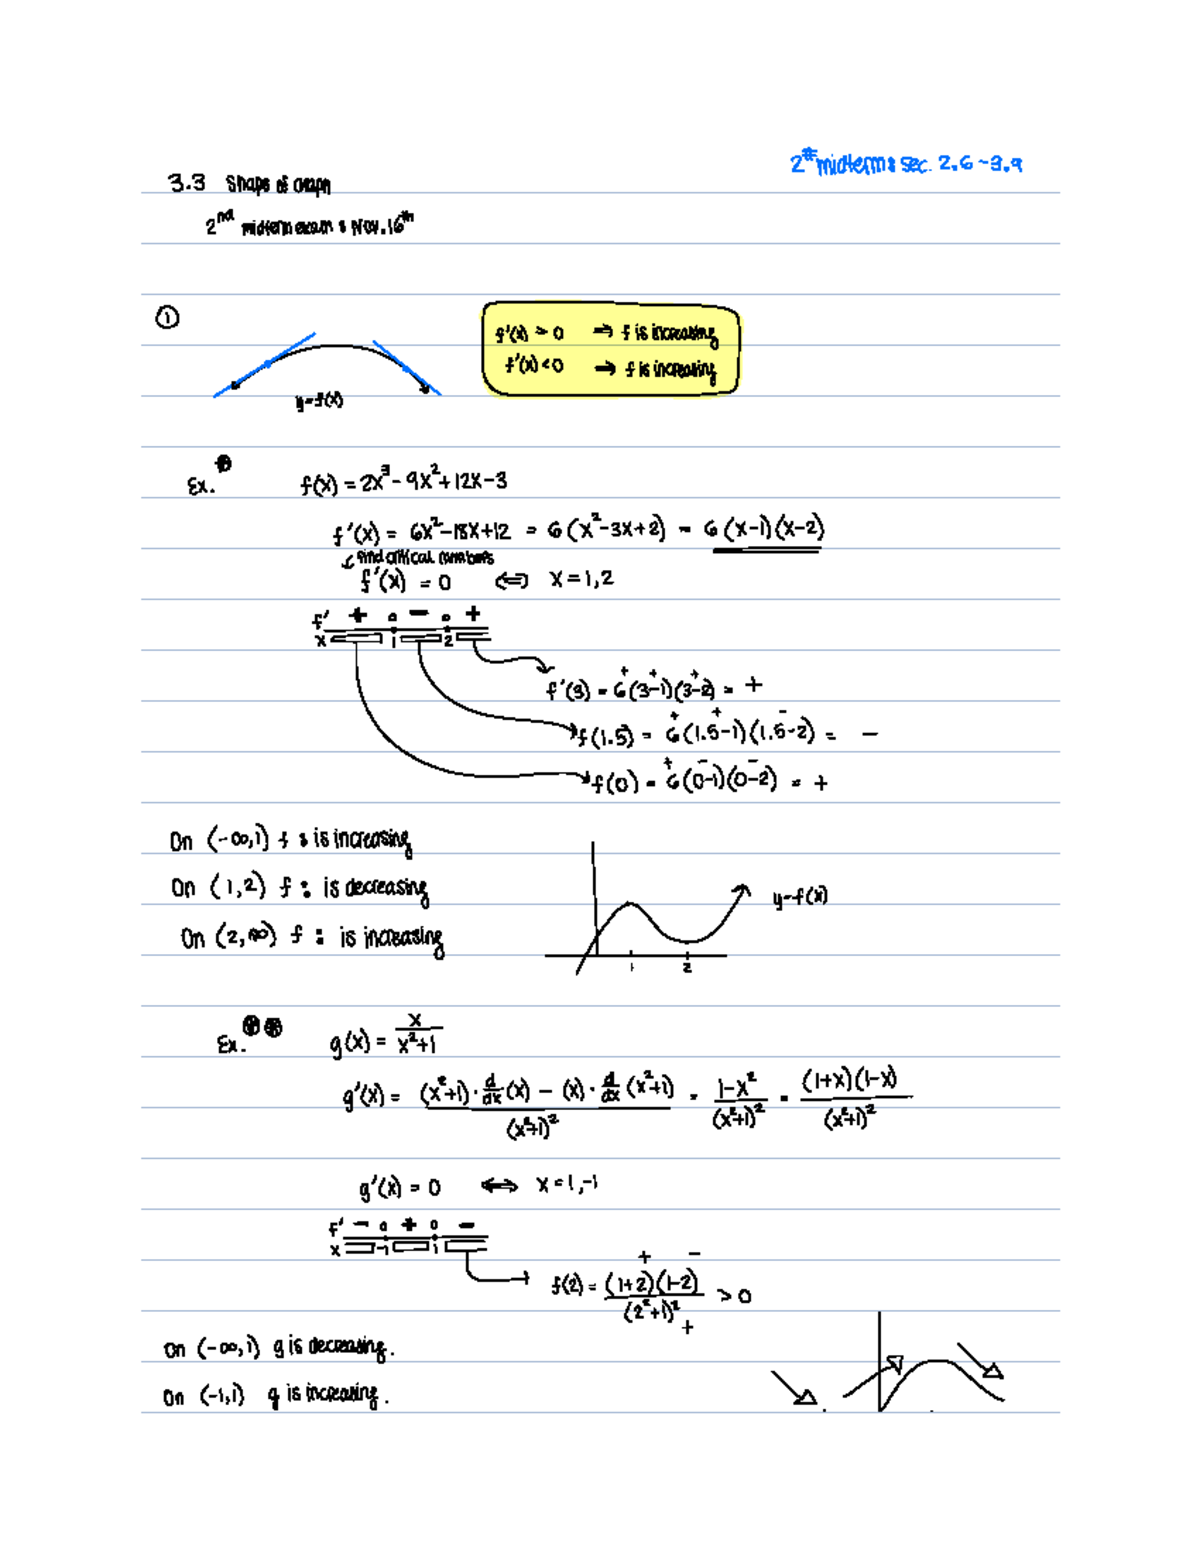 2# midterm : sec. 2.6 ~ 3.9
3.3 Shape of Graph
2nd midterm exam : Nov. 16th
①
f'(x) > 0 ⇒ f is increasing
f'(x) < 0 ⇒ f is increasing
y=f(x)
Ex.
f(x) = 2x³ - 9x² + 12x - 3
f'(x) = 6x² - 18x + 12 = 6(x² - 3x + 2) = 6(x-1)(x-2)
find critical numbers
f'(x) = 0 ⇔ x = 1, 2
f' + 0 - 0 +
x 1 2
f'(3) = 6(3-1)(3-2) = +
f(1.5) = 6(1.5-1)(1.5-2) = -
f(0) = 6(0-1)(0-2) = +
On (-∞,1) f : is increasing
On (1,2) f : is decreasing
On (2,∞) f : is increasing
y=f(x)
1 2
Ex.
g(x) = x/(x²+1)
g'(x) = ((x²+1)·d/dx(x) - (x)·d/dx(x²+1))/(x²+1)² = (1-x²)/(x²+1)² = (1+x)(1-x)/(x²+1)²
g'(x) = 0 ⟺ x = 1, -1
f' - 0 + 0 -
x -1 1
f(2) = (1+2)(1-2)/(2²+1)² > 0
On (-∞,1) g is decreasing.
On (-1,1) g is increasing.